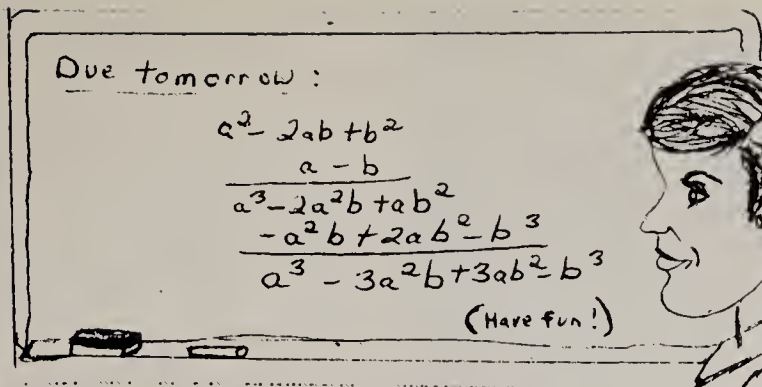 Due tomorrow :
a² - 2ab + b²
a - b
a³ - 2a²b + ab²
- a²b + 2ab² - b³
a³ - 3a²b + 3ab² - b³
(Have fun!)